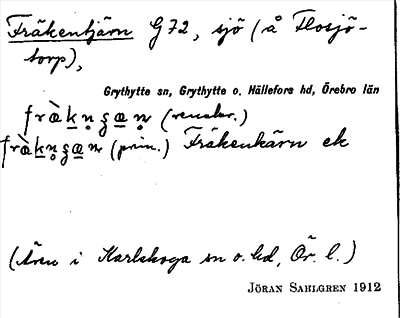 Fräkentjärn G72, sjö (å Flosjö-
torp),
Grythytte sn, Grythytte o. Hällefors hd, Örebro län
(renskr.)
(prim.) Fräkenkärn ek
(Även i Karlskoga sn o. hd, Ör. l.)
JÖRAN SAHLGREN 1912